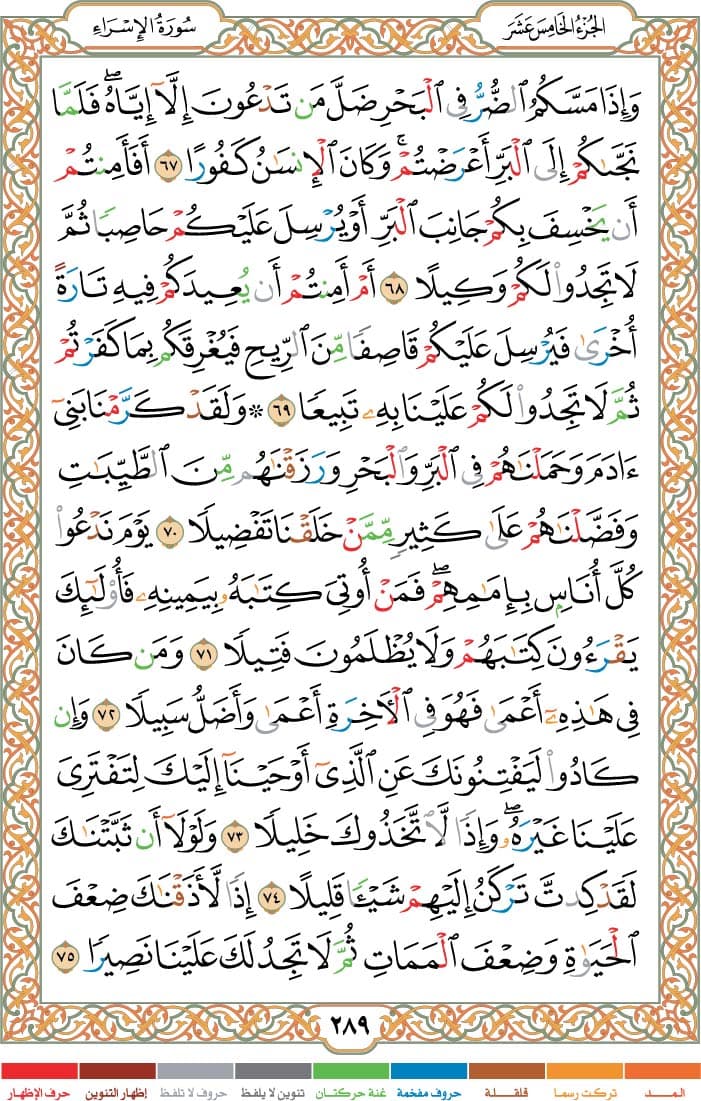 الجُزْءُ الخَامِسَ عَشَرَ
سُورَةُ الإِسْرَاءِ
وَإِذَا مَسَّكُمُ ٱلضُّرُّ فِي ٱلْبَحْرِ ضَلَّ مَن تَدْعُونَ إِلَّآ إِيَّاهُۖ فَلَمَّا
نَجَّىٰكُمْ إِلَى ٱلْبَرِّ أَعْرَضْتُمْۚ وَكَانَ ٱلْإِنسَٰنُ كَفُورًا ٦٧ أَفَأَمِنتُمْ
أَن يَخْسِفَ بِكُمْ جَانِبَ ٱلْبَرِّ أَوْ يُرْسِلَ عَلَيْكُمْ حَاصِبًا ثُمَّ
لَا تَجِدُوا۟ لَكُمْ وَكِيلًا ٦٨ أَمْ أَمِنتُمْ أَن يُعِيدَكُمْ فِيهِ تَارَةً
أُخْرَىٰ فَيُرْسِلَ عَلَيْكُمْ قَاصِفًا مِّنَ ٱلرِّيحِ فَيُغْرِقَكُم بِمَا كَفَرْتُمْ
ثُمَّ لَا تَجِدُوا۟ لَكُمْ عَلَيْنَا بِهِۦ تَبِيعًا ٦٩ ۞ وَلَقَدْ كَرَّمْنَا بَنِىٓ
ءَادَمَ وَحَمَلْنَٰهُمْ فِي ٱلْبَرِّ وَٱلْبَحْرِ وَرَزَقْنَٰهُم مِّنَ ٱلطَّيِّبَٰتِ
وَفَضَّلْنَٰهُمْ عَلَىٰ كَثِيرٍ مِّمَّنْ خَلَقْنَا تَفْضِيلًا ٧٠ يَوْمَ نَدْعُوا۟
كُلَّ أُنَاسٍۭ بِإِمَٰمِهِمْۖ فَمَنْ أُوتِىَ كِتَٰبَهُۥ بِيَمِينِهِۦ فَأُو۟لَٰٓئِكَ
يَقْرَءُونَ كِتَٰبَهُمْ وَلَا يُظْلَمُونَ فَتِيلًا ٧١ وَمَن كَانَ
فِي هَٰذِهِۦٓ أَعْمَىٰ فَهُوَ فِي ٱلْءَاخِرَةِ أَعْمَىٰ وَأَضَلُّ سَبِيلًا ٧٢ وَإِن
كَادُوا۟ لَيَفْتِنُونَكَ عَنِ ٱلَّذِىٓ أَوْحَيْنَآ إِلَيْكَ لِتَفْتَرِىَ
عَلَيْنَا غَيْرَهُۥۖ وَإِذًا لَّٱتَّخَذُوكَ خَلِيلًا ٧٣ وَلَوْلَآ أَن ثَبَّتْنَٰكَ
لَقَدْ كِدتَّ تَرْكَنُ إِلَيْهِمْ شَيْـًٔا قَلِيلًا ٧٤ إِذًا لَّأَذَقْنَٰكَ ضِعْفَ
ٱلْحَيَوٰةِ وَضِعْفَ ٱلْمَمَاتِ ثُمَّ لَا تَجِدُ لَكَ عَلَيْنَا نَصِيرًا ٧٥
٢٨٩
المــــد تركت رسما قلقـــلة حروف مفخمة غنة حركتان تنوين لا يلفظ حروف لا تلفظ إظهار التنوين حرف الإظهار